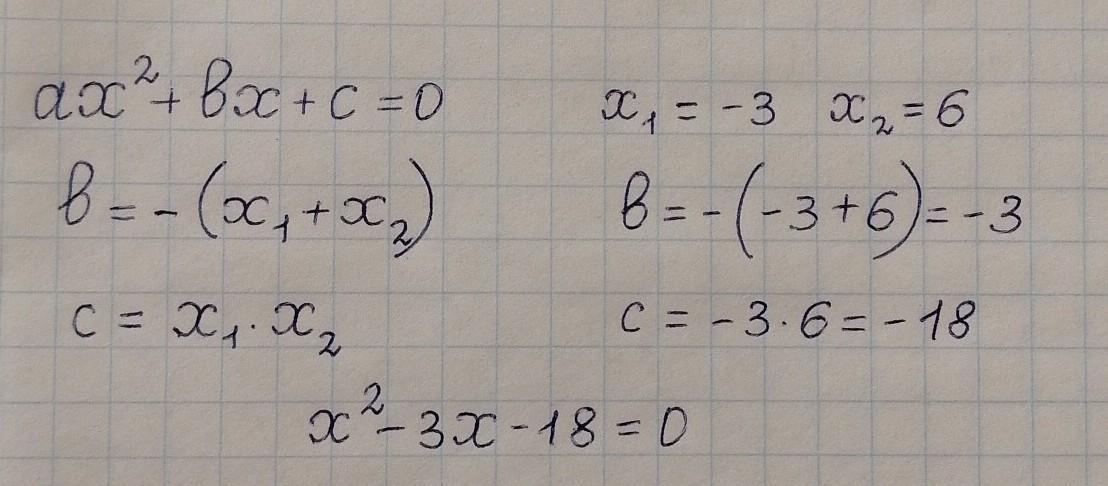 ax² + bx + c = 0 x₁ = -3 x₂ = 6
b = - (x₁ + x₂) b = - (-3 + 6) = -3
c = x₁ · x₂ c = -3 · 6 = -18
x² - 3x - 18 = 0